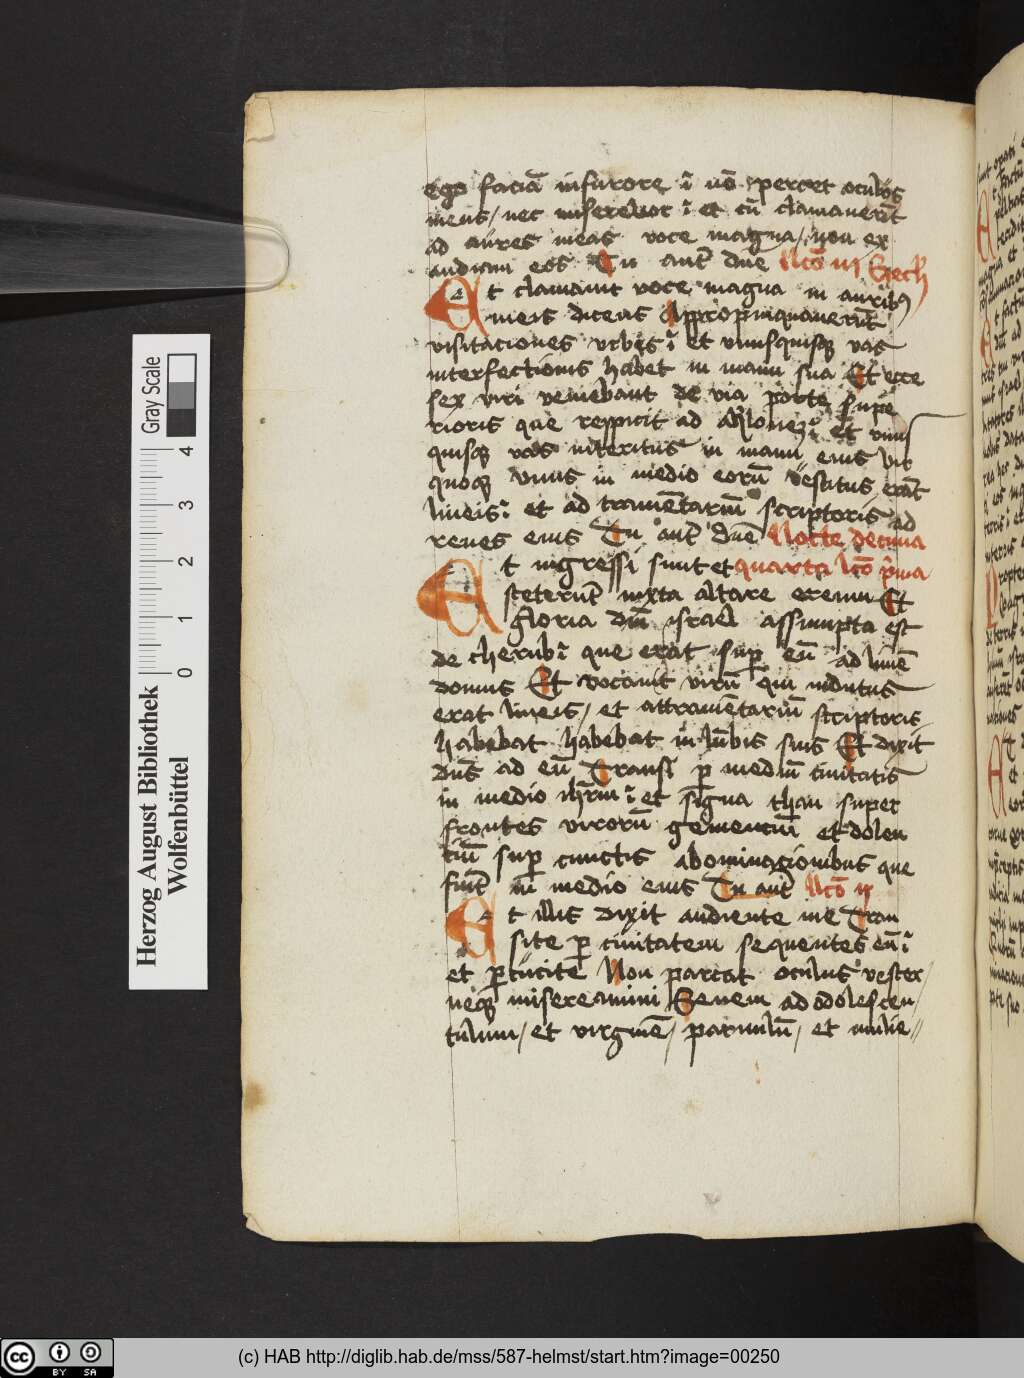 ego faciā in furore ī nō percet oculꝰ
meus / nec miserebor ī et cū clamauerīt
ad aures meas voce magna / non ex
audiam eos Tu aut̄ dn̄e Lc̄o iij Ezech
Et clamauit voce magna in auribꝫ
meis dicens Appropinquauerūt
visitaciones vrbis ī et vnusquisqꝫ vas
interfectionis habet in manu sua Et ecce
sex viri veniebant de via porte supe
rioris que respicit ad aq̇lonez ī et vnus
quisqꝫ vas interitus in manu eius vir
quoqꝫ vnus in medio eorū vestitus erāt
lineis ī et ad tramētariū scriptoris ad
renes eius Tu aut̄ dn̄e Nocte decima
Et ingressi sunt et quarta lc̄o p̄ma
steterūt iuxta altare ereum Et
gloria dnī israel assumpta est
de cherubī que erat suꝑ eū ad limē
domus Et vocauit virū qui indutus
erat lineis / et attramētariū scriptoris
habebat habebat in lūbis suis Et dixit
dn̄s ad eū Transi ꝑ mediū ciuitatis
in medio ihr̄m ī et signa thau super
frontes virorū gemenciū et dolen
ciū suꝑ cunctis abominacionibus que
fiūt in medio eius Tu aut̄ Lc̄o ij
Et illis dixit audiente me Tran
site ꝑ ciuitatem sequentes eū ī
et ꝑcucitē Non parcat oculus vester /
neqꝫ misereamini Senem ad adolescen /
tulum / et virginē / paruulū / et mulie //
Herzog August Bibliothek
Wolfenbüttel
0 1 2 3 4
Gray Scale
cc BY SA
(c) HAB http://diglib.hab.de/mss/587-helmst/start.htm?image=00250